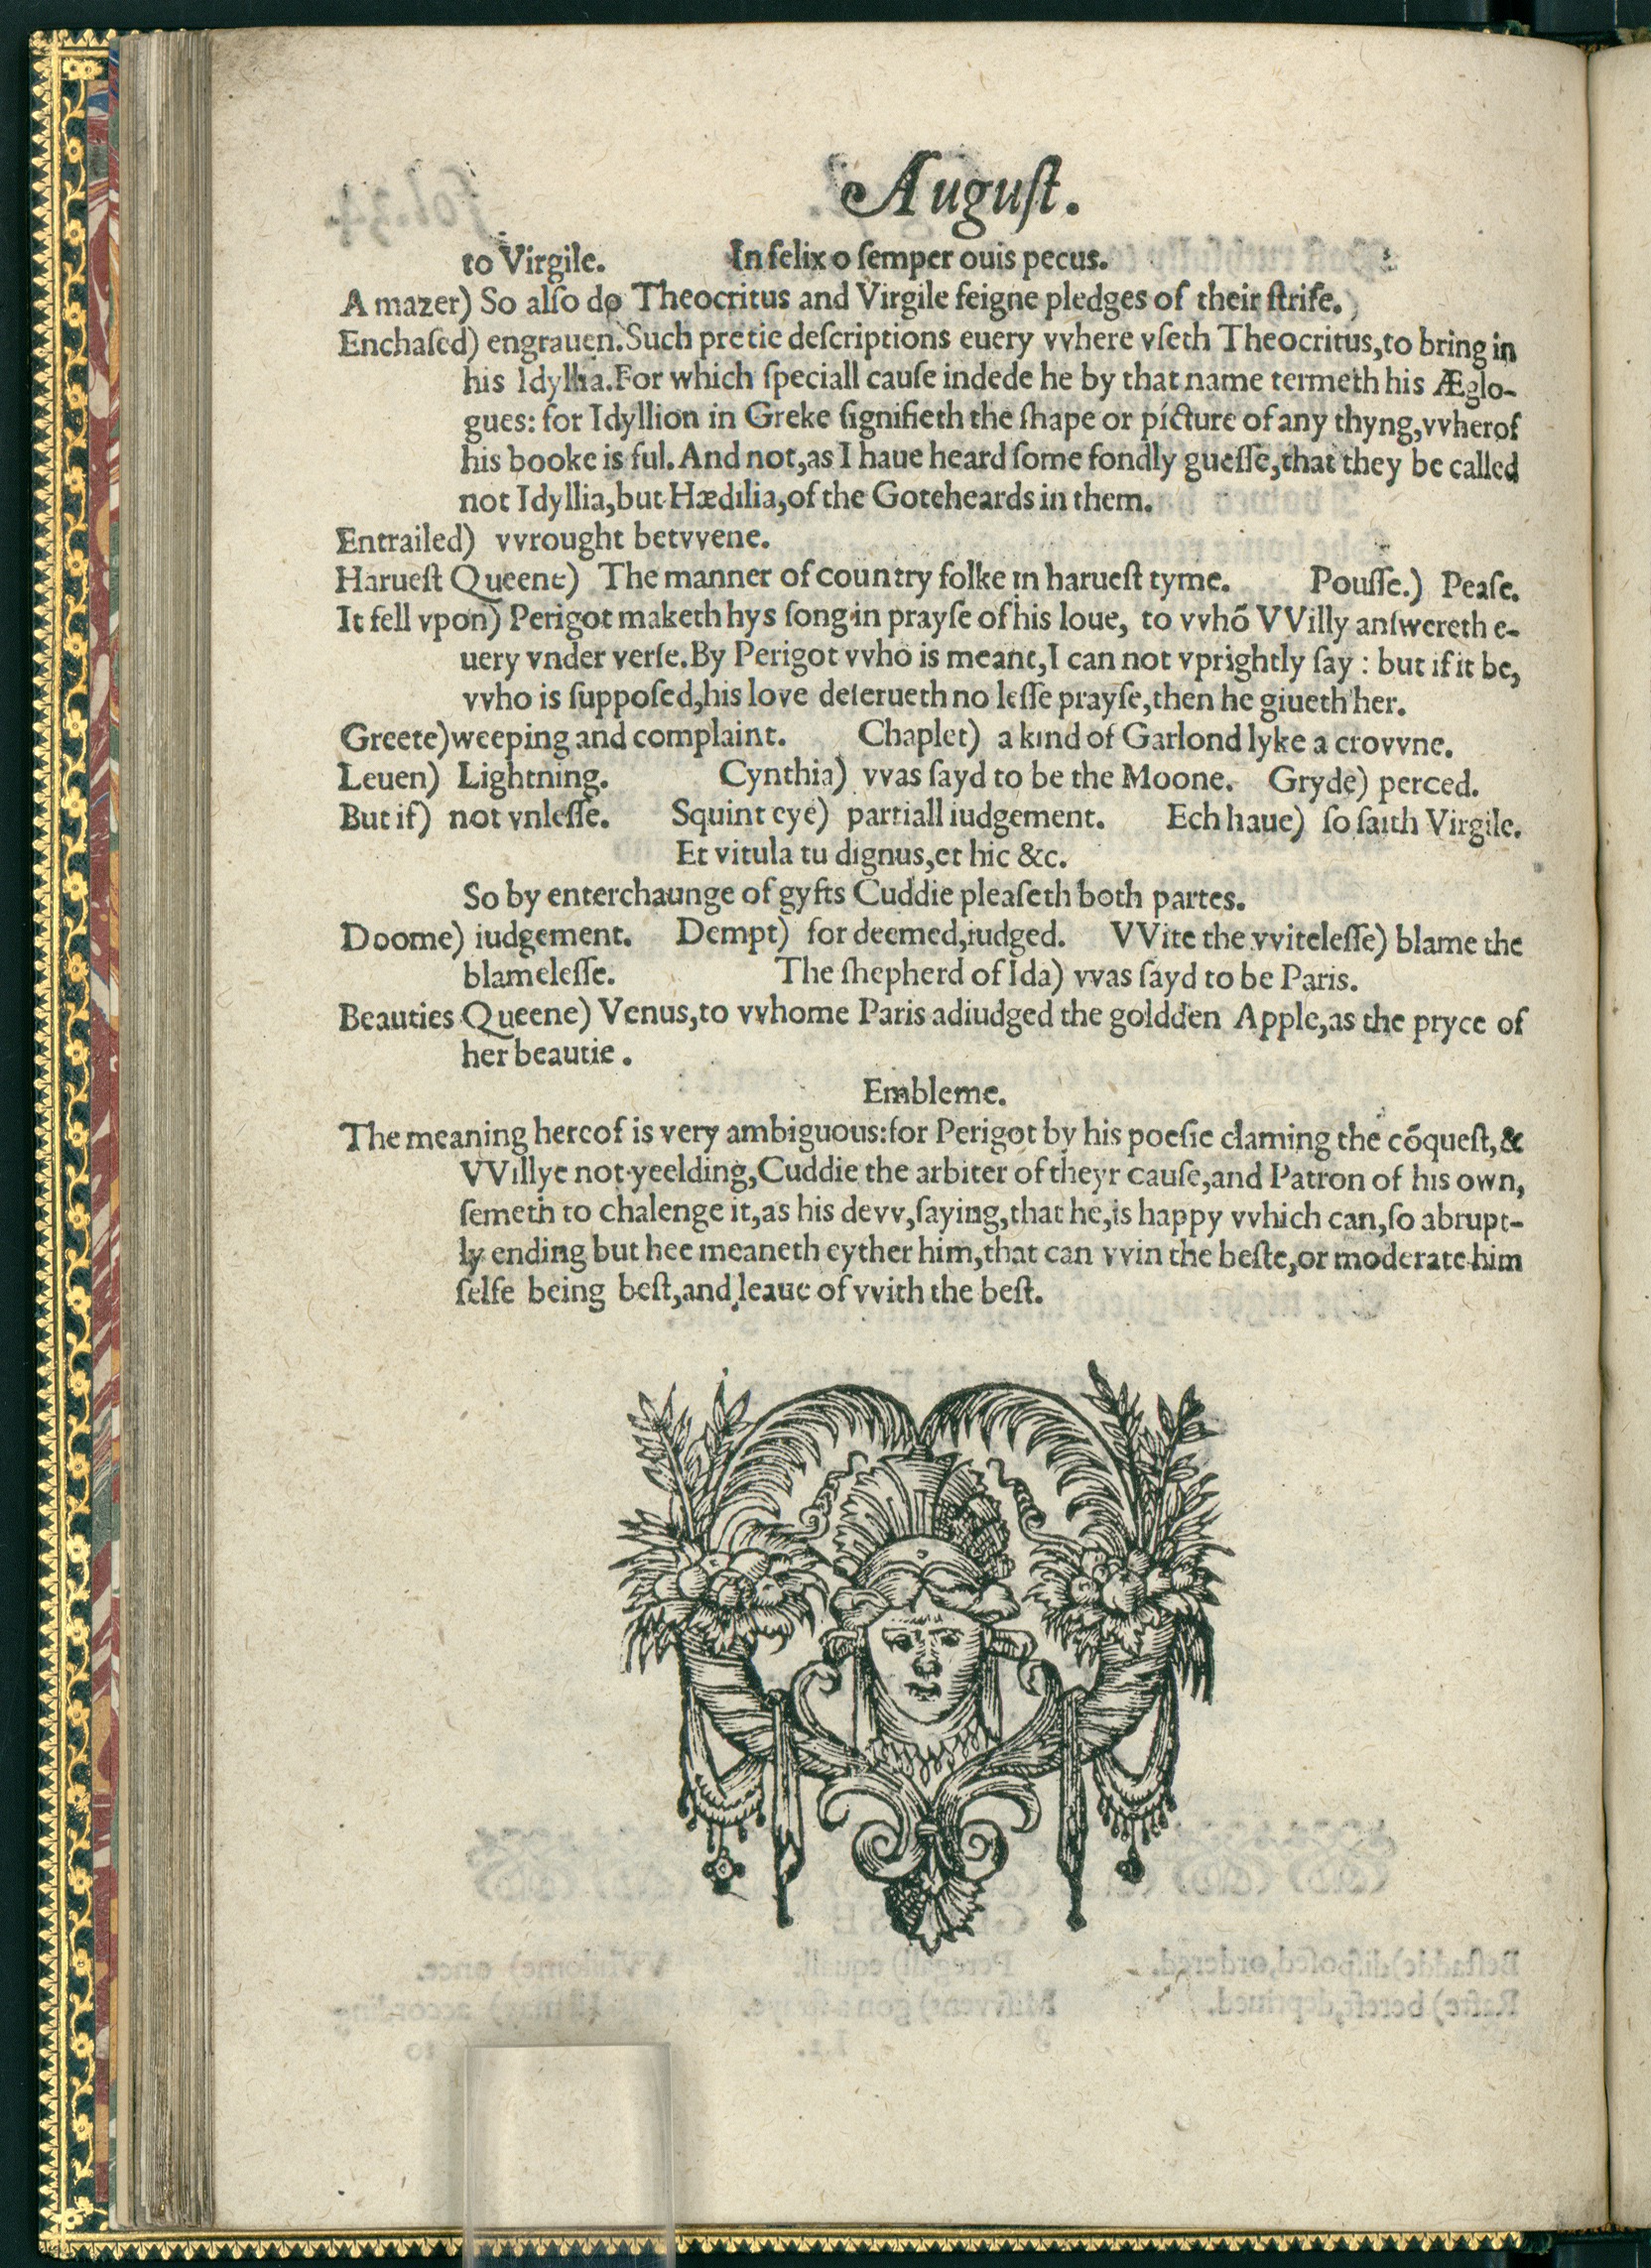 Auguſt.
to Virgile. In felix o ſemper ouis pecus.
A mazer) So alſo do Theocritus and Virgile feigne pledges of their ſtrife.
Enchaſed) engrauen. Such pretie deſcriptions euery vvhere vſeth Theocritus, to bring in
his Idyllia. For which ſpeciall cauſe indede he by that name termeth his Æglo-
gues: for Idyllion in Greke ſignifieth the ſhape or picture of any thyng, vvherof
his booke is ful. And not, as I haue heard ſome fondly gueſſe, that they be called
not Idyllia, but Hædilia, of the Goteheards in them.
Entrailed) vvrought betvvene.
Harueſt Queene) The manner of country folke in harueſt tyme. Pouſſe.) Peaſe.
It fell vpon) Perigot maketh hys ſong in prayſe of his loue, to vvhō VVilly anſwereth e-
uery vnder verſe. By Perigot vvho is meant, I can not vprightly ſay : but if it be,
vvho is ſuppoſed, his love deſerueth no leſſe prayſe, then he giueth her.
Greete) weeping and complaint. Chaplet) a kind of Garlond lyke a crovvne.
Leuen) Lightning. Cynthia) vvas ſayd to be the Moone. Gryde) perced.
But if) not vnleſſe. Squint eye) partiall iudgement. Ech haue) ſo ſaith Virgile.
Et vitula tu dignus, et hic &c.
So by enterchaunge of gyfts Cuddie pleaſeth both partes.
Doome) iudgement. Dempt) for deemed, iudged. VVite the vviteleſſe) blame the
blameleſſe. The ſhepherd of Ida) vvas ſayd to be Paris.
Beauties Queene) Venus, to vvhome Paris adiudged the goldden Apple, as the pryce of
her beautie.
Embleme.
The meaning hereof is very ambiguous: for Perigot by his poeſie claming the cōqueſt, &
VVillye not yeelding, Cuddie the arbiter of theyr cauſe, and Patron of his own,
ſemeth to chalenge it, as his devv, ſaying, that he, is happy vvhich can, ſo abrupt-
ly ending but hee meaneth eyther him, that can vvin the beſte, or moderate him
ſelfe being beſt, and leaue of vvith the beſt.